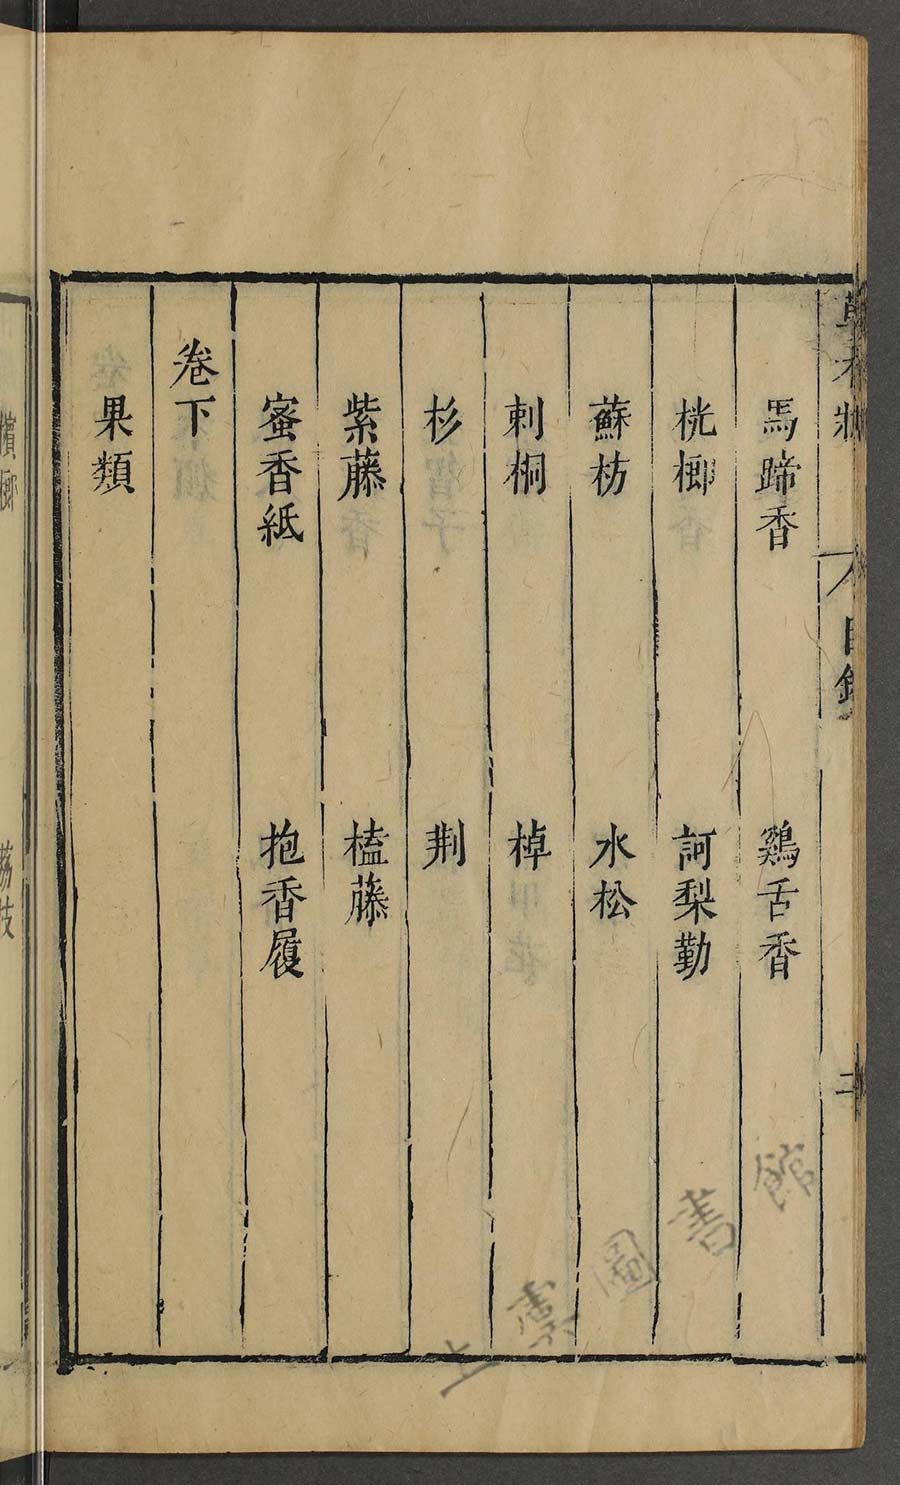 馬蹄香　雞舌香
桄榔　訶梨勒
蘇枋　水松
刺桐　棹
杉　荆
紫藤　榼藤
蜜香紙　抱香履
卷下
果類
草木狀　目錄　二
檳榔　荔枝
上虞圖書館